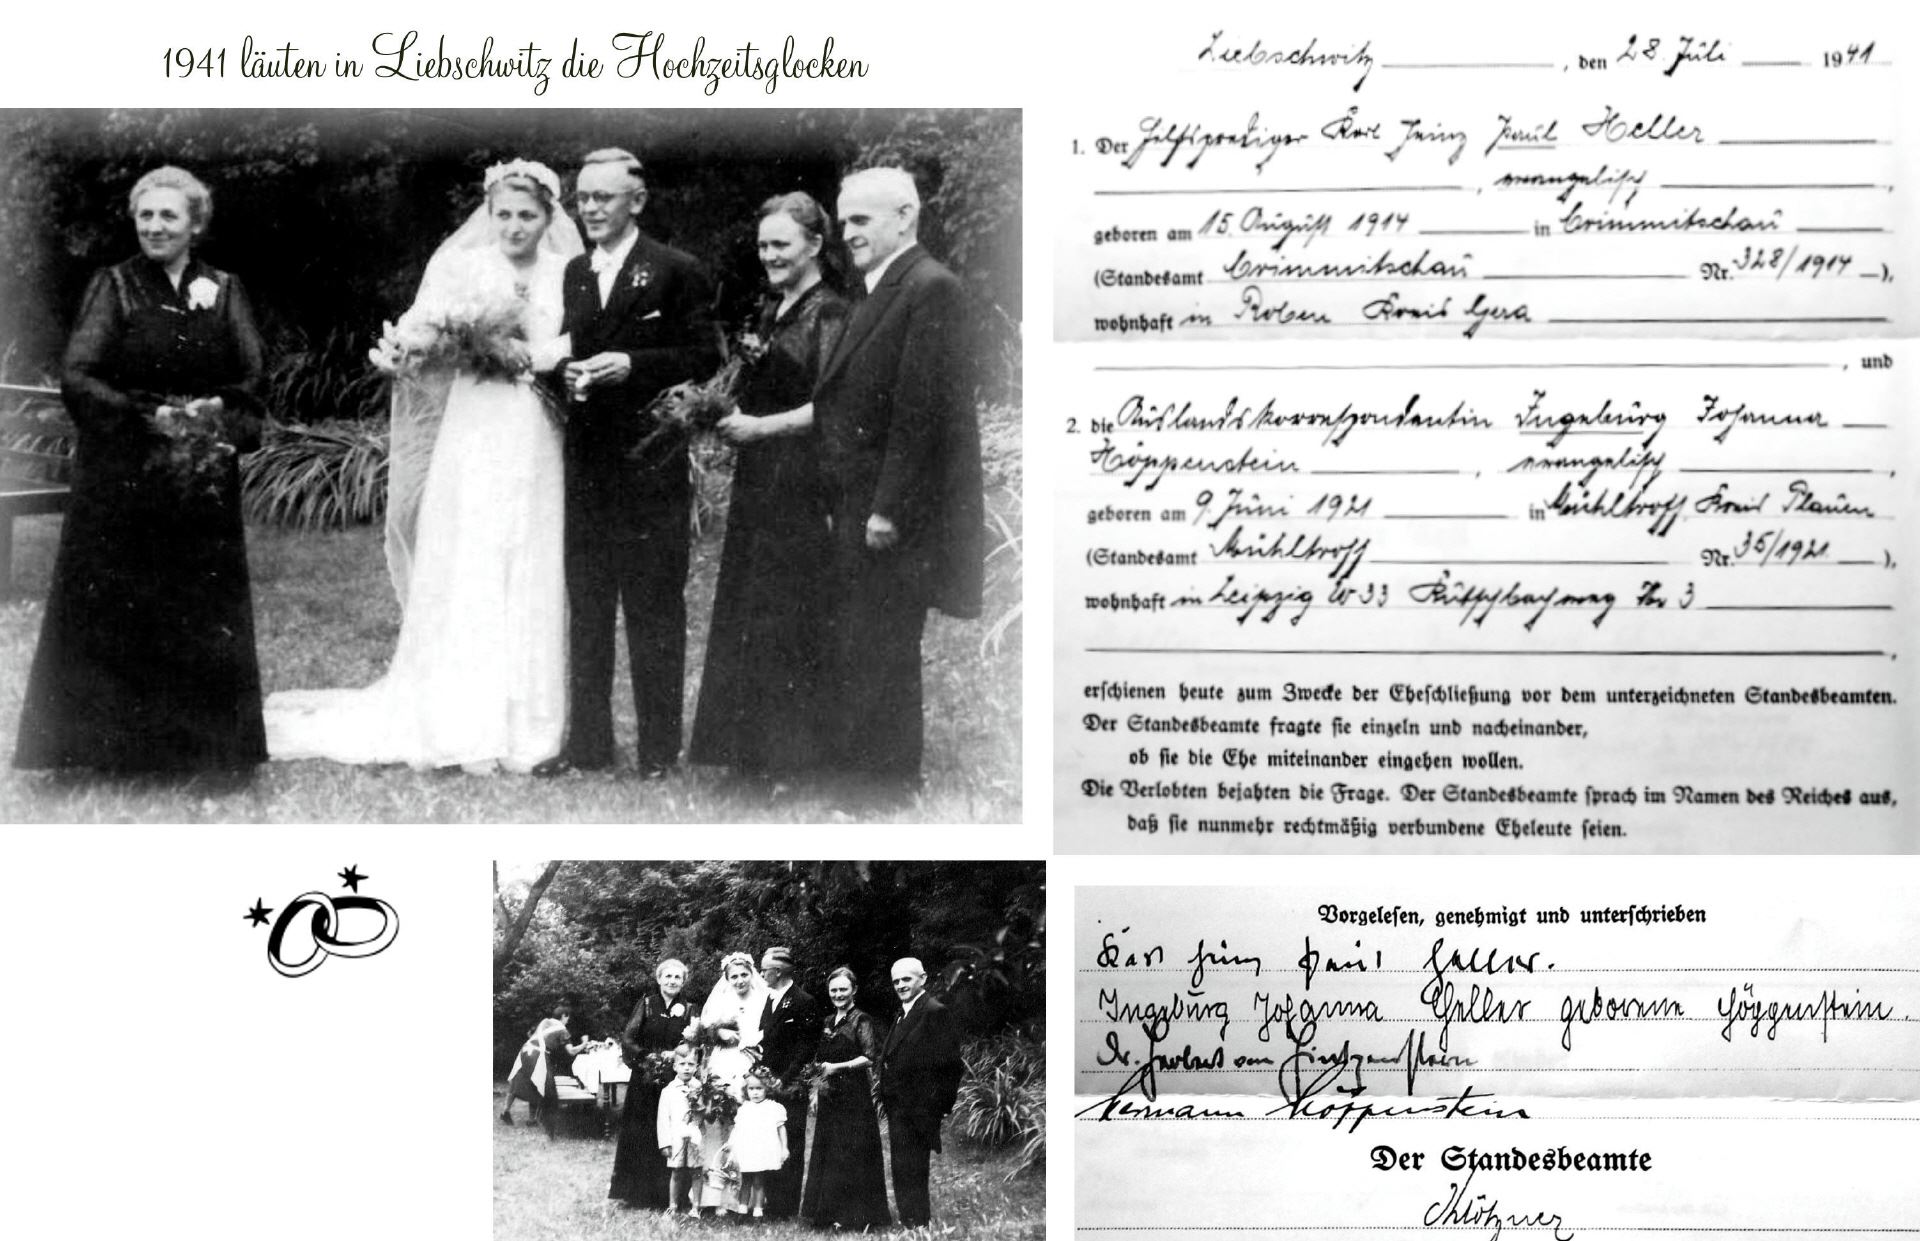 1941 läuten in Liebschwitz die Hochzeitsglocken
Liebschwitz, den 28. Juli 1941
1. Der Hilfsprediger Karl Heinz Paul Heller
, evangelisch,
geboren am 15. August 1914 in Crimmitschau
(Standesamt Crimmitschau Nr. 328/1914),
wohnhaft in Roben Kreis Gera
, und
2. die Auslandskorrespondentin Ingeburg Johanna
Höppenstein, evangelisch,
geboren am 9. Juni 1921 in Mühltroff Kreis Plauen
(Standesamt Mühltroff Nr. 35/1921),
wohnhaft in Leipzig W 33 Nr 3
,
erschienen heute zum Zwecke der Eheschließung vor dem unterzeichneten Standesbeamten.
Der Standesbeamte fragte sie einzeln und nacheinander,
ob sie die Ehe miteinander eingehen wollen.
Die Verlobten bejahten die Frage. Der Standesbeamte sprach im Namen des Reiches aus,
daß sie nunmehr rechtmäßig verbundene Eheleute seien.
Vorgelesen, genehmigt und unterschrieben
Karl Heinz Paul Heller.
Ingeburg Johanna Heller geborene Höppenstein.
Dr. Herbert von Hintzenstern
Hermann Höppenstein
Der Standesbeamte
Klötzner